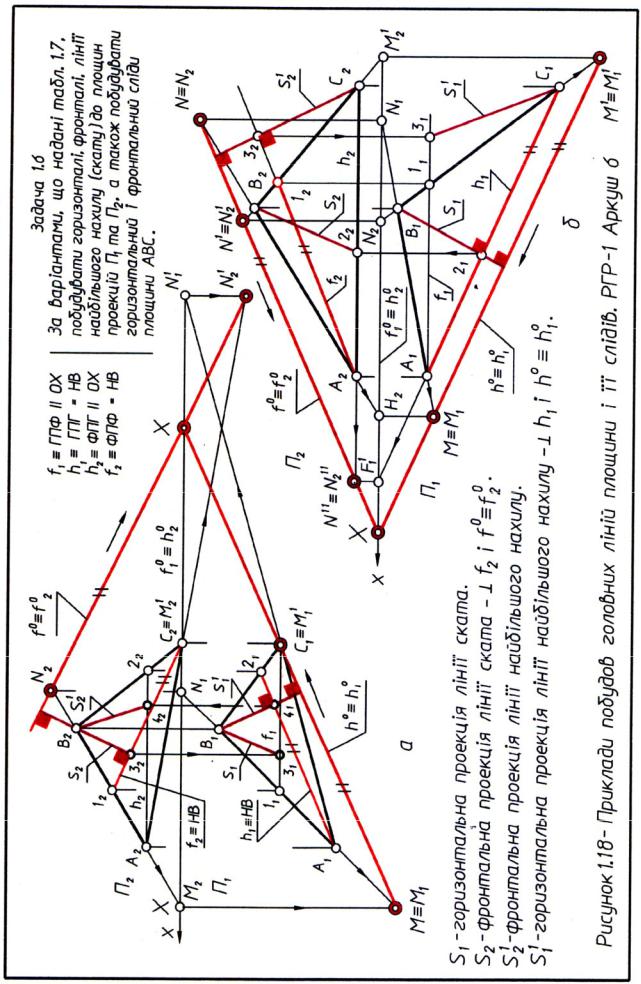 Задача 1.6
За варіантами, що надані табл. 1.7,
побудувати горизонталі, фронталі, лінії
найбільшого нахилу (скату) до площин
проекцій П₁ та П₂, а також побудувати
горизонтальний і фронтальний сліди
площини АВС.
f₁ ≡ ГПФ II ОХ
h₁ ≡ ГПГ = НВ
h₂ ≡ ФПГ II ОХ
f₂ ≡ ФПФ = НВ
N₂
f⁰≡f₂⁰
X
N₁'
N₂'
B₂
S₂
S₂'
2₂
1₂
4₂
3₂
A₂
h₂
C₂≡M₂'
f₁⁰≡h₂⁰
f₂≡НВ
П₂
M₂
X
x
П₁
N₁
B₁
S₁'
2₁
S₁
4₁
f₁
3₁
1₁
C₁≡M₁'
h₁≡НВ
A₁
h⁰≡h₁⁰
M≡M₁
а
N≡N₂
S₂'
C₂
M₂'
3₂
B₂
N'≡N₂'
1₂
S₂
h₂
N₁
2₂
f₂
N₂
f⁰≡f₂⁰
A₂
f₁⁰≡h₂⁰
H₂
П₂
N''≡N₂''
F₁'
X
x
П₁
3₁
S₁'
C₁
M'≡M₁'
1₁
B₁
S₁
h₁
2₁
f₁
A₁
h⁰≡h₁⁰
M≡M₁
б
S₁ -горизонтальна проекція лінії ската.
S₂ -фронтальна проекція лінії ската -⊥ f₂ і f⁰≡f₂⁰.
S₂' -фронтальна проекція лінії найбільшого нахилу.
S₁' -горизонтальна проекція лінії найбільшого нахилу -⊥ h₁ і h⁰ ≡ h₁⁰.
Рисунок 1.18- Приклади побудов головних ліній площини і її слідів. РГР-1 Аркуш 6